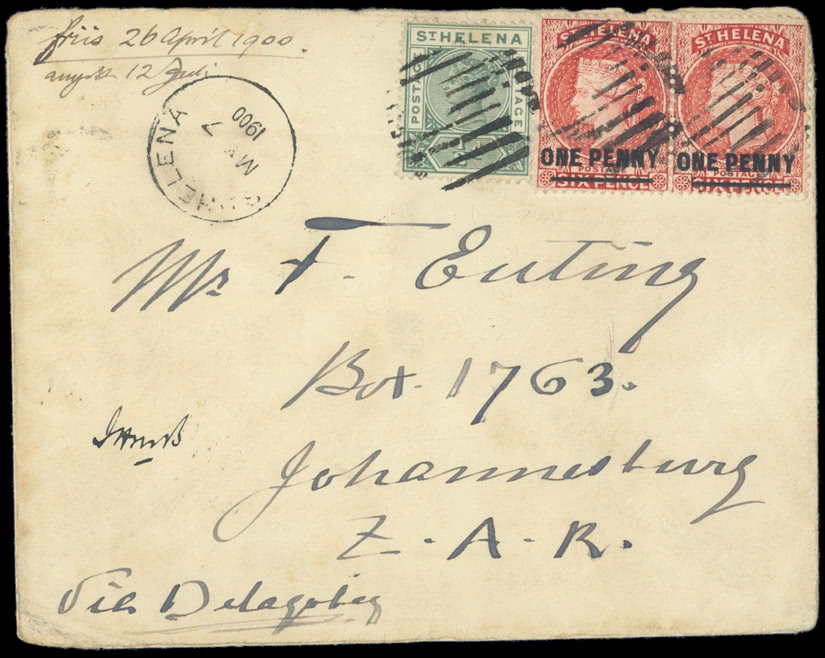 26 April 1900.
12 Juli
ST HELENA
MY 7
1900
ST HELENA
POSTAGE
ST HELENA
ONE PENNY
POSTAGE
SIX PENCE
ST HELENA
ONE PENNY
POSTAGE
SIX PENCE
Mr F. Euting
Box. 1763.
Johannesburg
Z. A. R.
Via Delagobay